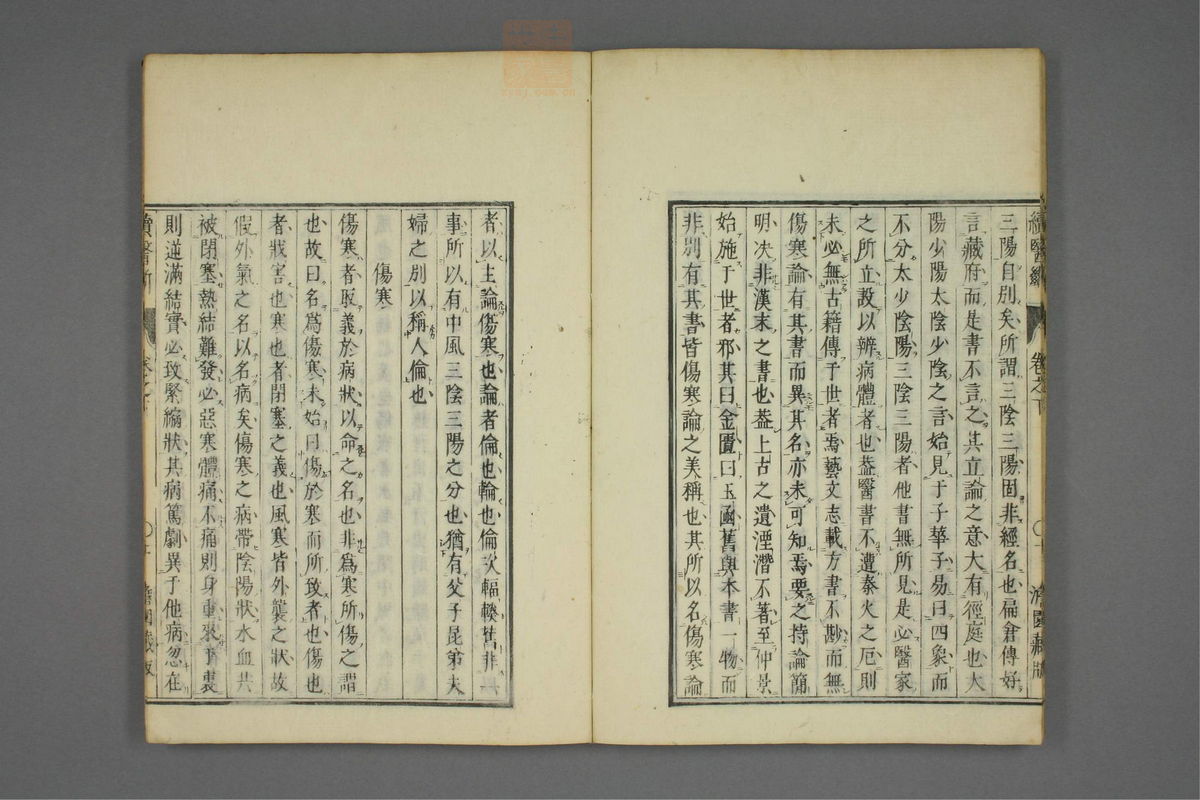 三陽自別矣所謂三陰三陽固非經名也扁倉傳好
言藏府而是書不言之其立論之意大有徑庭也大
陽少陽太陰少陰之言始見于子華子易曰四象而
不分太少陰陽三陰三陽者他書無所見是必醫家
之所立設以辨病體者也葢醫書不遭秦火之厄則
未必無古籍傳于世者焉藝文志載方書不尠而無
傷寒論有其書而異其名亦未可知焉要之持論簡
明决非漢末之書也葢上古之遺湮潛不著至仲景
始施于世者邪其曰金匱曰玉函舊與本書一物而
非別有其書皆傷寒論之美稱也其所以名傷寒論
者以主論傷寒也論者倫也輪也倫次輻輳皆非
事所以有中風三陰三陽之分也猶有父子昆弟夫
婦之別以稱人倫也
傷寒
傷寒者取義於病狀以命之名也非爲寒所傷之謂
也故曰名爲傷寒未始曰傷於寒而所致者也傷也
者戕害也寒也者閉塞之義也風寒皆外襲之狀故
假外氣之名以名病矣傷寒之病帶陰陽狀水血共
被閉塞熱結難發必惡寒體痛不痛則身重衆于裏
則逆滿結實必致緊縮狀其病篤劇異于他病忽在
續醫斷
卷之下